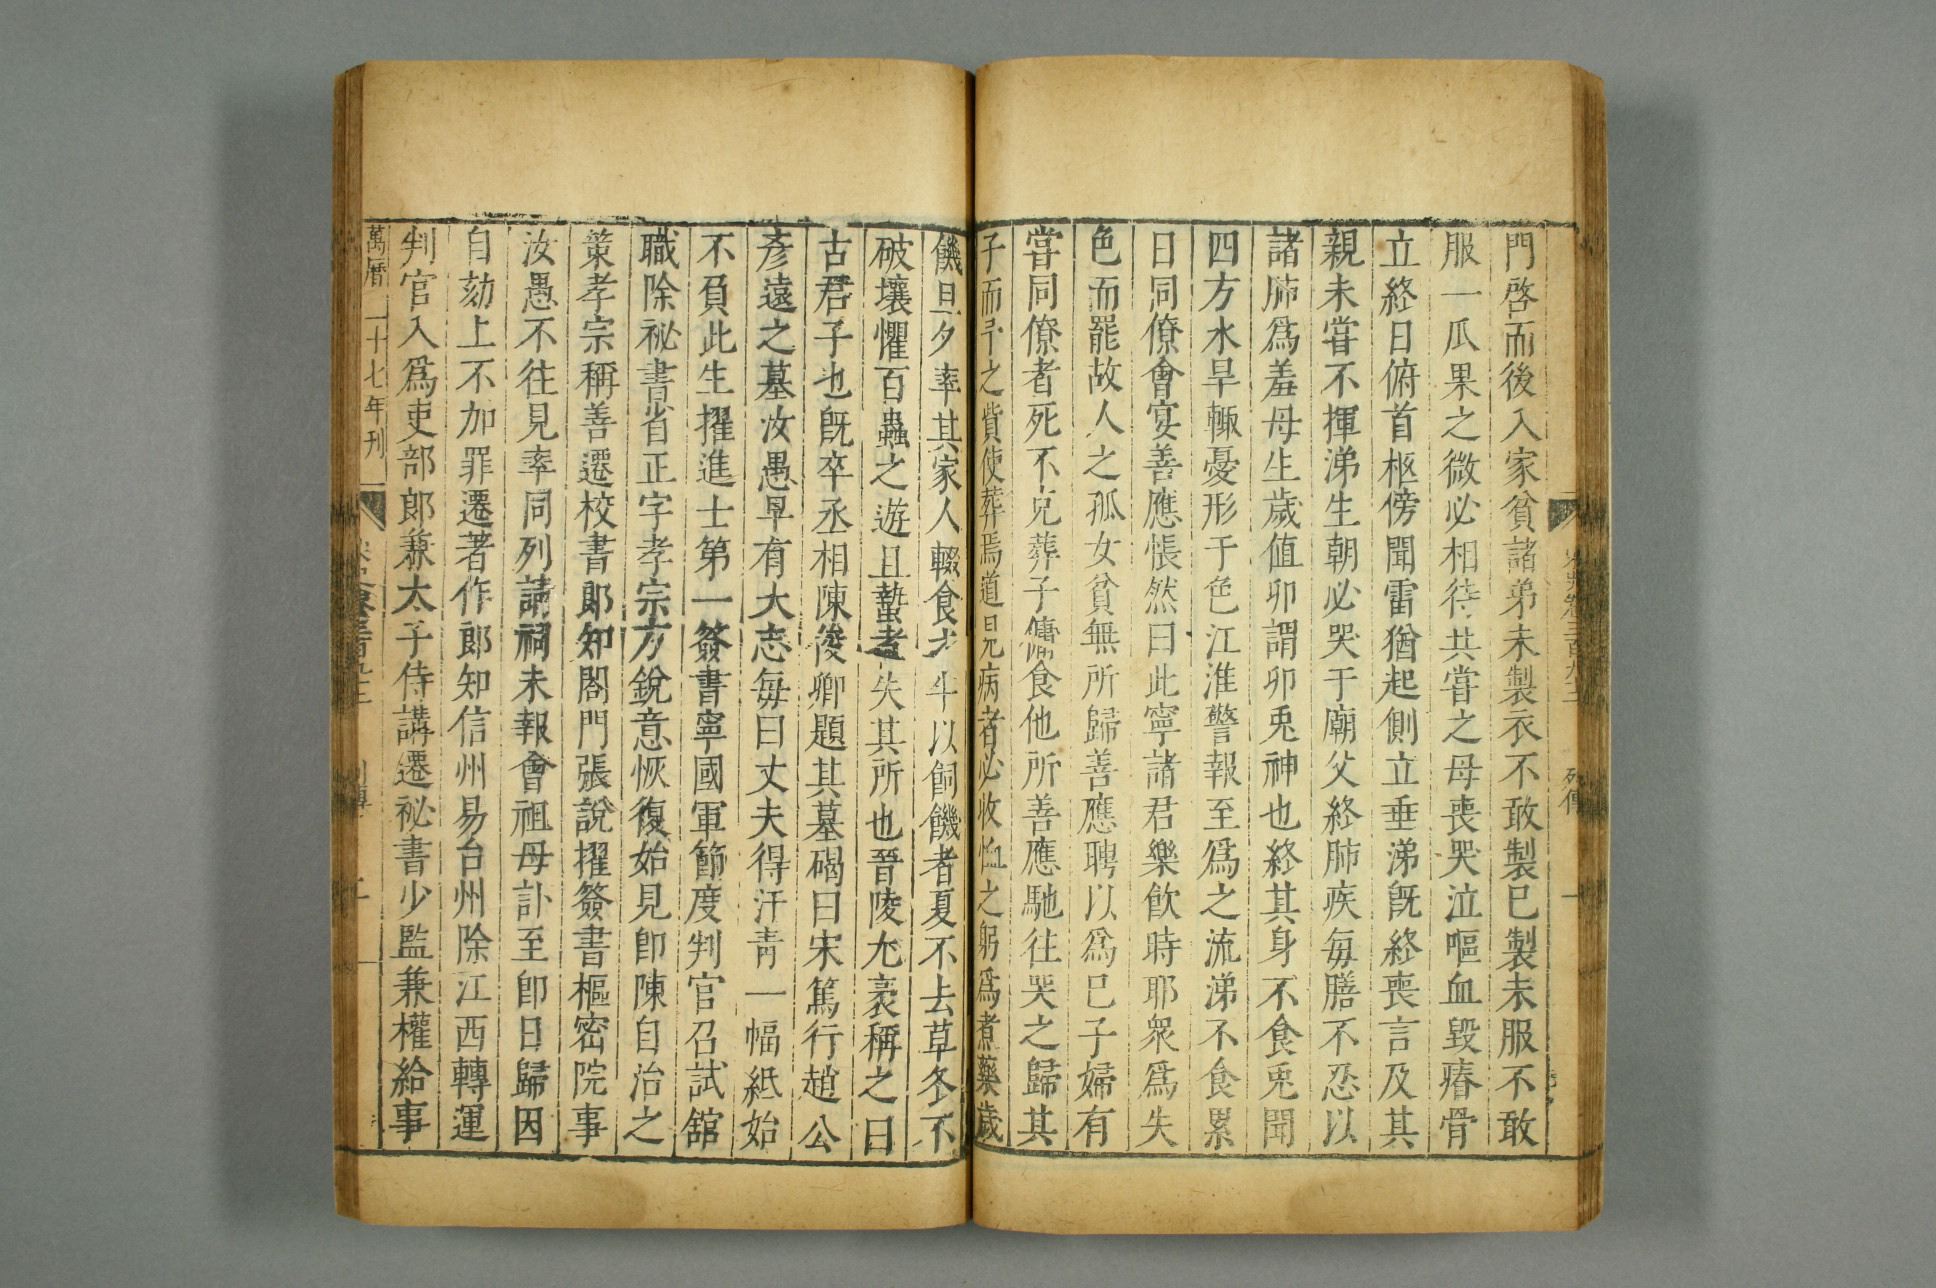 門啓而後入家貧諸弟未製衣不敢製已製未服不敢
服一瓜果之微必相待共嘗之母喪哭泣嘔血毀瘠骨
立終日俯首柩傍聞雷猶起側立垂涕既終喪言及其
親未嘗不揮涕生朝必哭于廟父終肺疾每膳不忍以
諸肺爲羞母生歲值卯謂卯兎神也終其身不食兎聞
四方水旱輒憂形于色江淮警報至爲之流涕不食累
日同僚會宴善應悵然曰此寧諸君樂飲時耶衆爲失
色而罷故人之孤女貧無所歸善應聘以爲己子婦有
嘗同僚者死不克葬子傭食他所善應馳往哭之歸其
子而予之貲使葬焉道見病者必收恤之躬爲煮藥歲
饑旦夕率其家人輟食之半以飼饑者夏不去草冬不
破壤懼百蟲之遊且蟄者失其所也晉陵尤袤稱之曰
古君子也既卒丞相陳俊卿題其墓碣曰宋篤行趙公
彥遠之墓汝愚早有大志每曰丈夫得汗青一幅紙始
不負此生擢進士第一簽書寧國軍節度判官召試館
職除祕書省正字孝宗方銳意恢復始見即陳自治之
策孝宗稱善遷校書郎知閤門張說擢簽書樞密院事
汝愚不往見率同列請祠未報會祖母訃至即日歸因
自劾上不加罪遷著作郎知信州易台州除江西轉運
判官入爲吏部郎兼太子侍講遷祕書少監兼權給事
萬曆二十七年刊
列傳